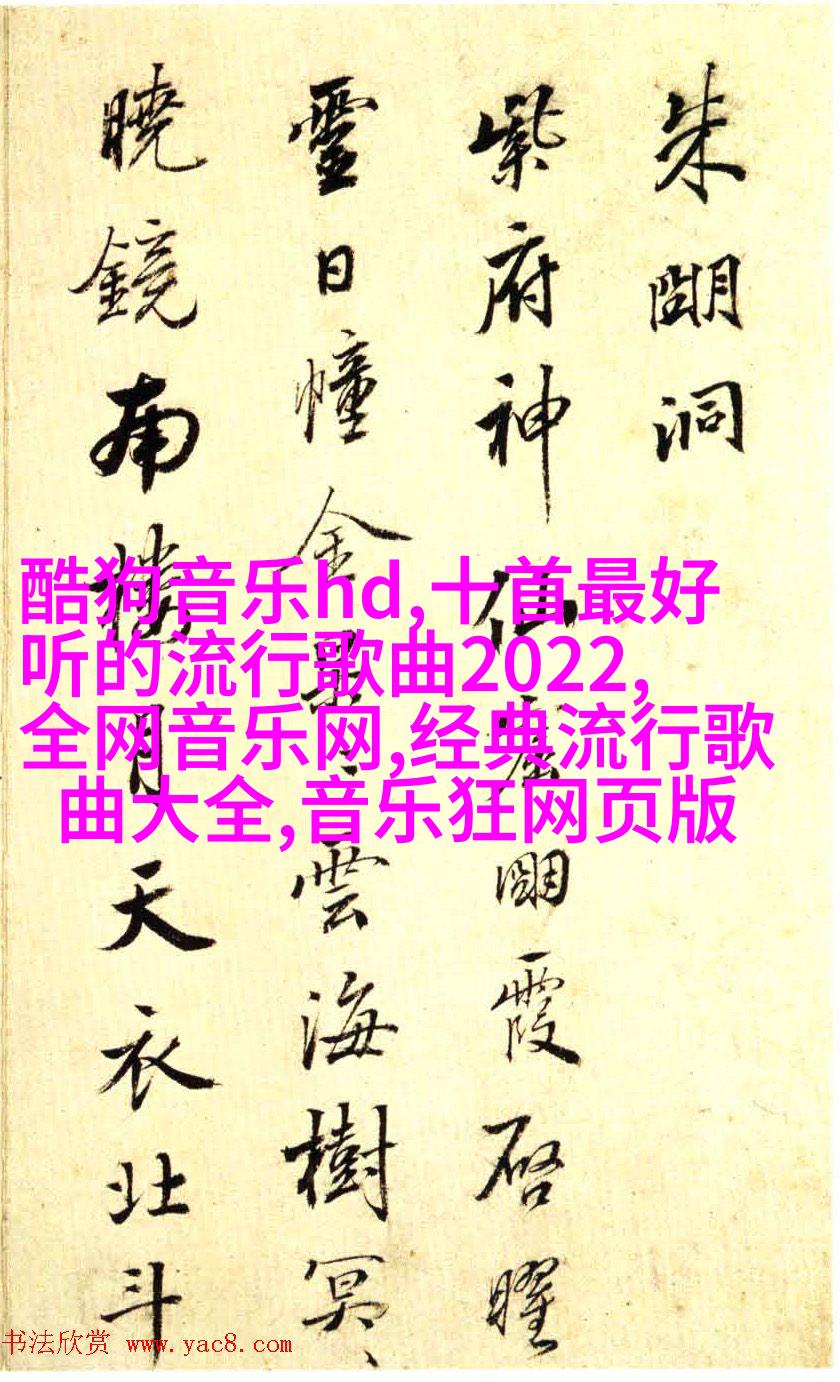 朱朙洞
紫府神仙窟朙霞启曜
靈日幢金雲海樹冥、
曉鏡南樓月天衣北斗
酷狗音乐hd,十首最好
听的流行歌曲2022,
全网音乐网,经典流行歌
曲大全,音乐狂网页版
书法欣赏 www.yac8.com